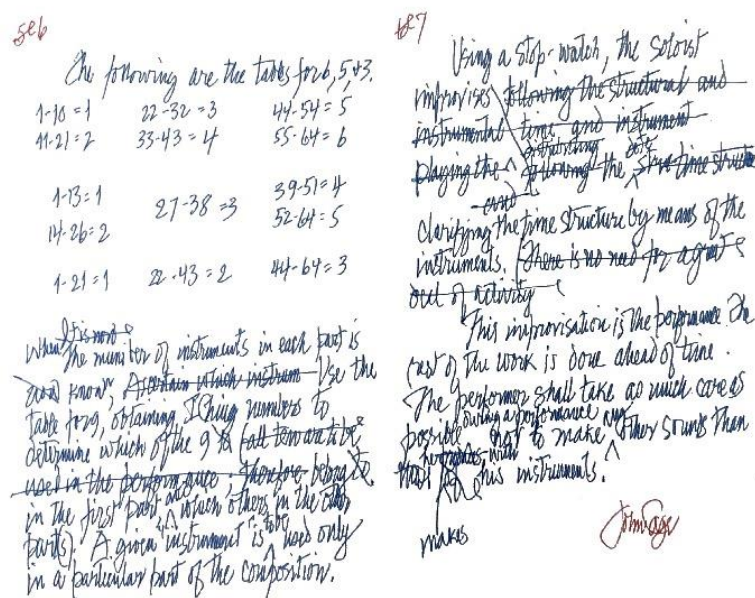 5 & 6
The following are the tables for 6, 5, & 3.
1-10 = 1 22-32 = 3 44-54 = 5
11-21 = 2 33-43 = 4 55-64 = 6
1-13 = 1 39-51 = 4
27-38 = 3
14-26 = 2 52-64 = 5
1-21 = 1 22-43 = 2 44-64 = 3
When
The number of instruments in each part is
know Ascertain which instrum Use the
table for 9, obtaining I Ching numbers to
determine which of the 9
used in the performance, therefore belong to
in the first part which others in the
part(s). A given instrument is to be used only
in a particular part of the composition.
7
Using a stop-watch, the soloist
improvises following the structural and
instrumental time and instrument
playing the following the time structure
clarifying the time structure by means of the
instruments. There is no need for
out of activity
This improvisation is the performance. The
rest of the work is done ahead of time.
The performer shall take as much care as
possible during a performance not to make any other sounds than
his instruments.
makes
John Cage